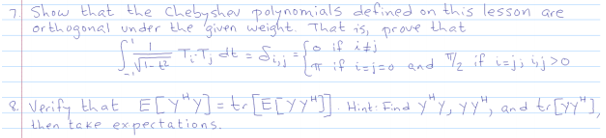 7. Show that the Chebyshev polynomials defined on this lesson are
orthogonal under the given weight. That is, prove that
∫_{-1}^{1} 1/√(1-t²) T_i T_j dt = δ_{i,j} = { 0 if i≠j
π if i=j=0 and π/2 if i=j; i,j>0
8. Verify that E[Y^H Y] = tr[E[YY^H]]. Hint: Find Y^H Y, YY^H, and tr[YY^H],
then take expectations.